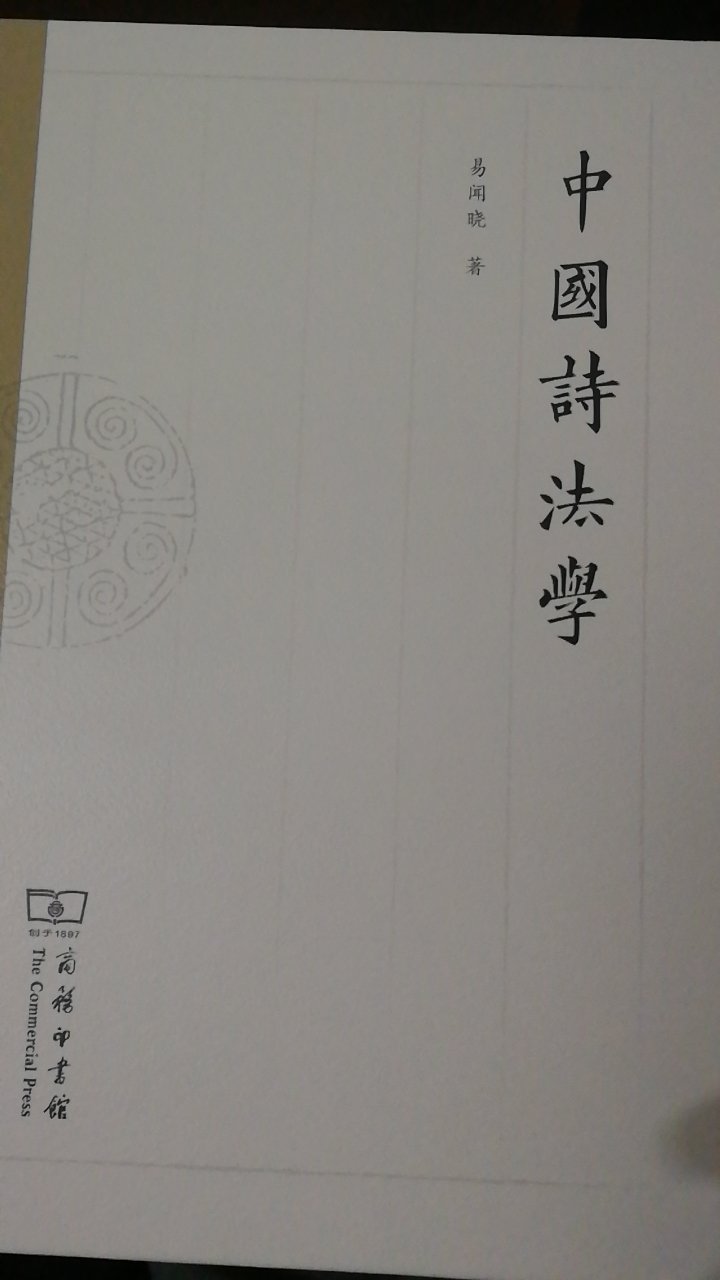 中國詩法學
易闻晓 著
创于1897
商務印書館
The Commercial Press